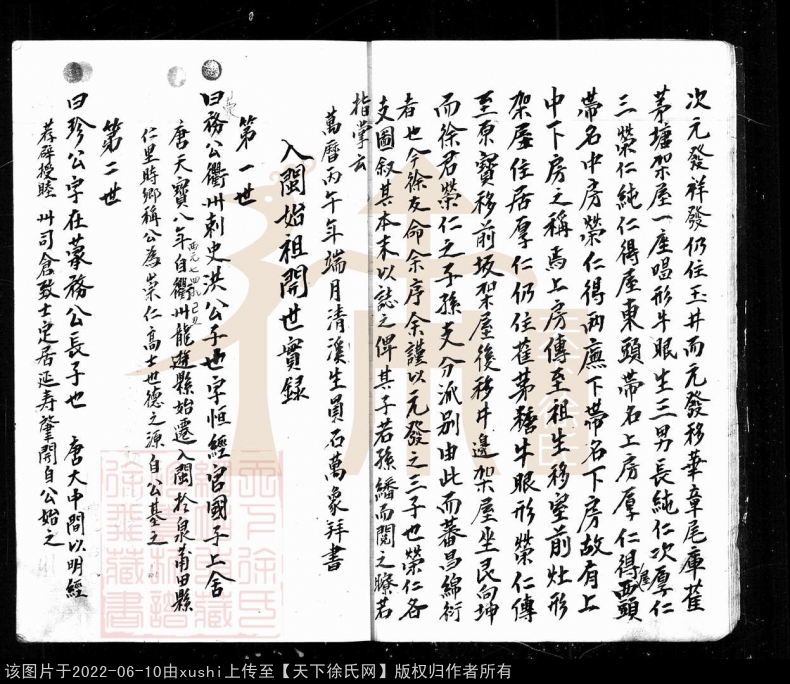 次元發祥發仍住玉井而元發移華章尾庫蓷
茅塘架屋一座唱形牛眠生三男長純仁次厚仁
三榮仁純仁得座東頭帶名上房厚仁得西頭
厝帶名中房榮仁得兩廡下帶名下房故有上
中下房之稱焉上房傳至祖生移室前灶形
架屋住居厚仁仍住蓷茅糖牛眼形榮仁傳
至原寶移前坂架屋後移井邊架屋坐艮向坤
而徐君榮仁之子孫支分派别由此而蕃昌綿衍
者也今徐友命余序余謹以元發之三子也榮仁各
支圖叙其本末以誌之俾其子若孫繙而閱之瞭若
指掌云
萬曆丙午年端月清溪生員石萬象拜書
入閩始祖開世實録
第一世
曰務公衢州刺史洪公子也字恒經官國子上舍
唐天寶八年西元七四九己丑自衢州龍遊縣始遷入閩於泉莆田縣
仁里時鄉稱公為榮仁高士世德之源自公基之
第二世
曰珍公字在蒙務公長子也 唐大中間以明經
荐辟授睦州司倉致士定居延寿肇開自公始之
天下徐氏
徐雅藏書
该图片于2022-06-10由xushi上传至【天下徐氏网】版权归作者所有